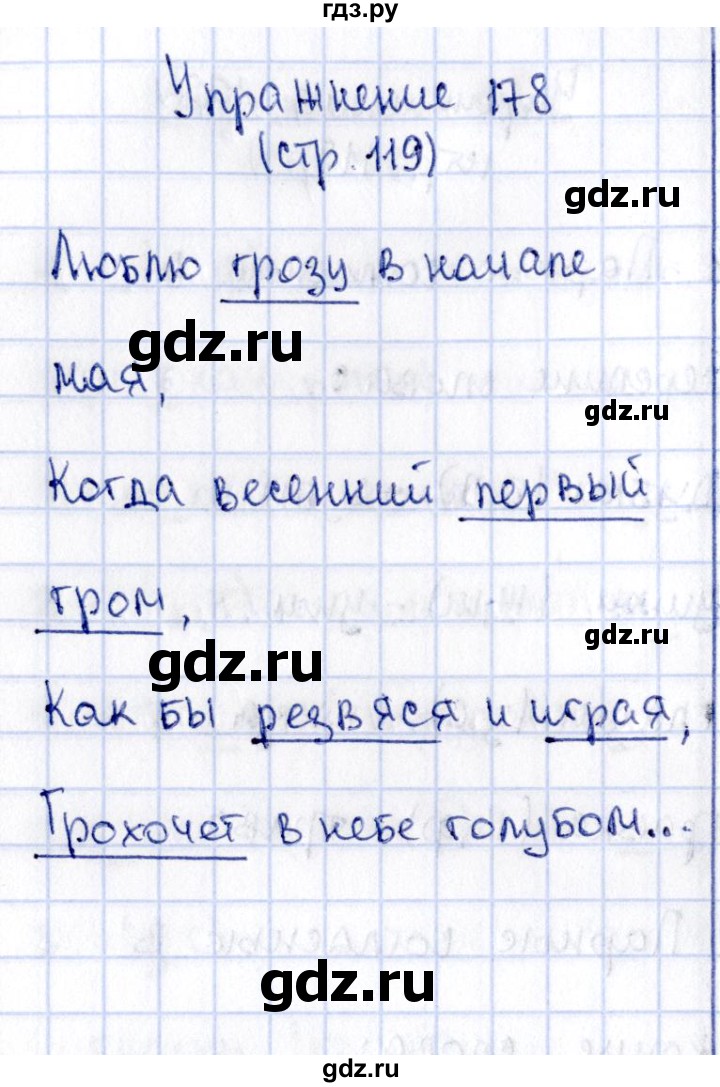 гдз.ру
Упражнение 178
(стр. 119)
gdz.ru
Люблю грозу в начале
gdz.ru
мая,
gdz.ru
Когда весенний первый
гром,
gdz.ru
gdz.ru
Как бы резвяся и играя,
Грохочет в небе голубом...
gdz.ru
gdz.ru